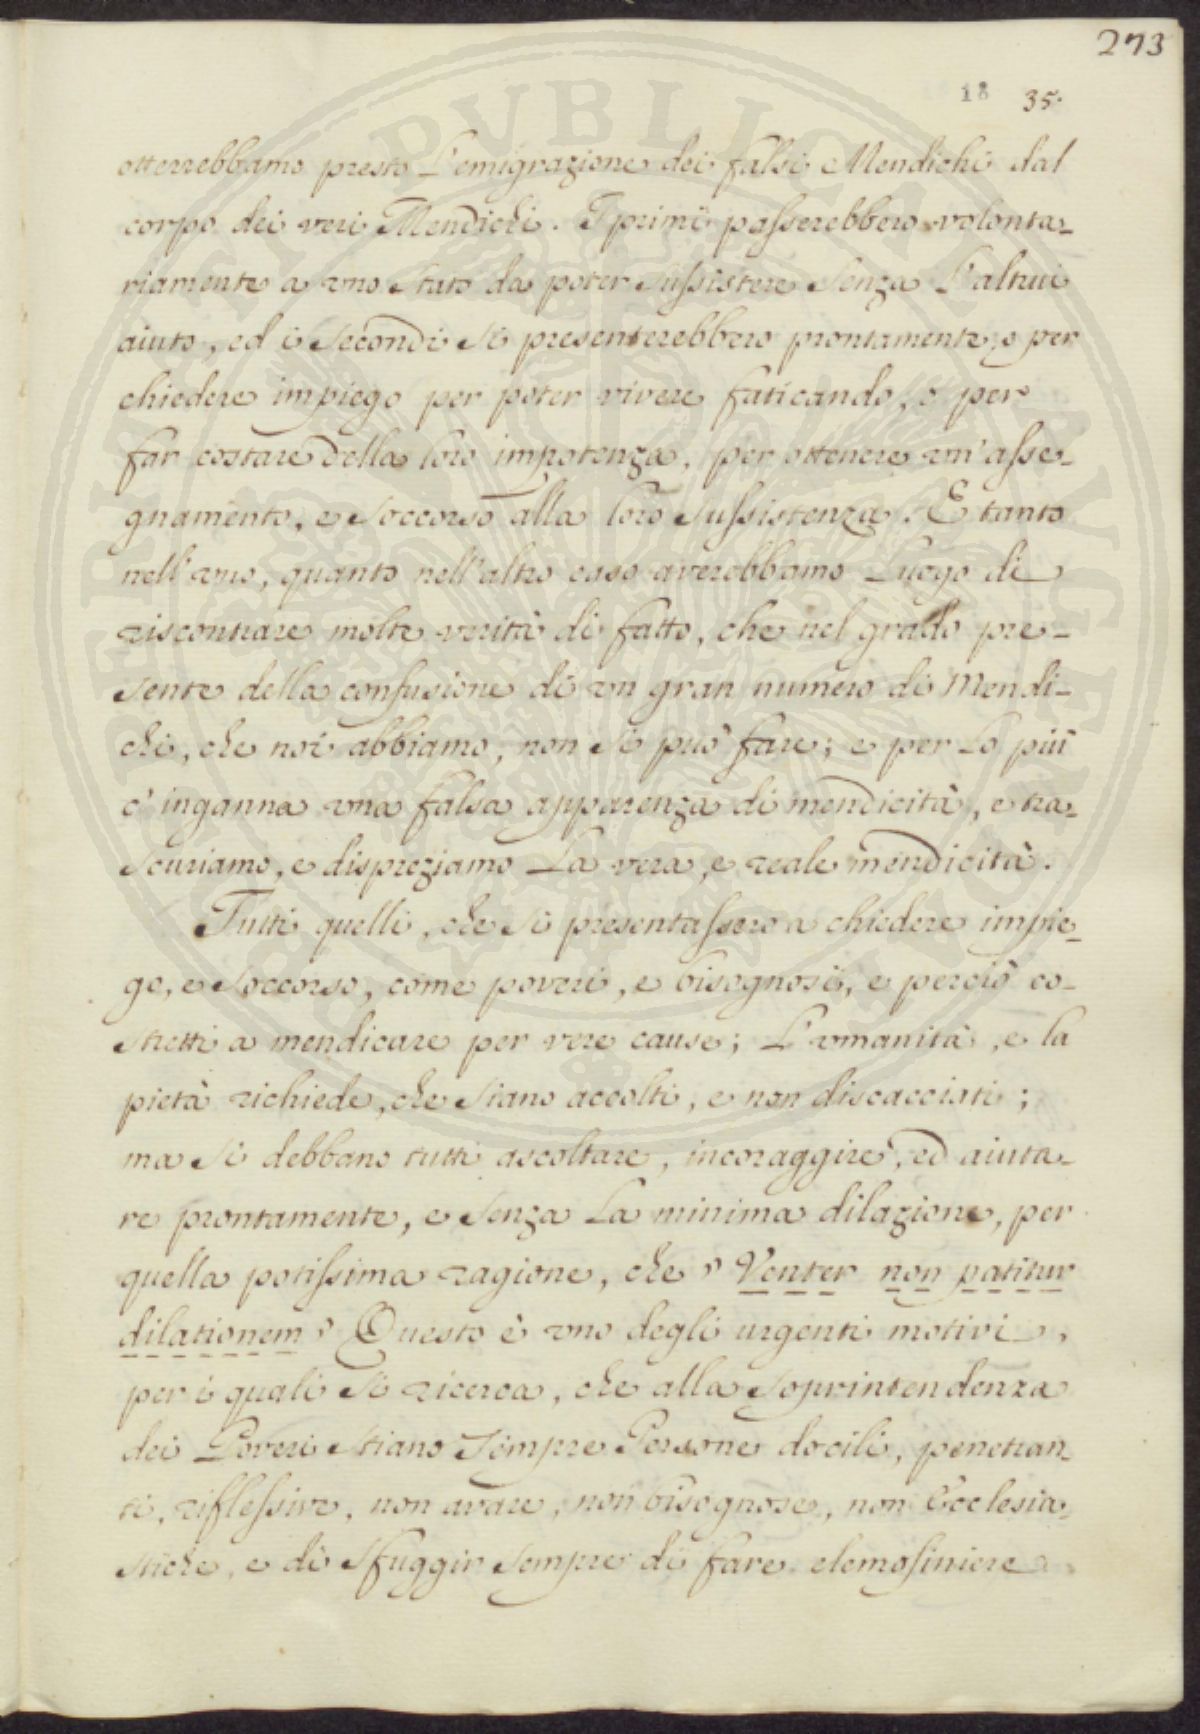 273
18 35.
otterrebbamo presto L'emigrazione dei falsi Mendichi dal
corpo dei veri Mendichi. I primi passerebbero volonta-
riamente a uno stato da poter sussistere senza L'altrui
aiuto, ed i secondi si presenterebbero prontamente, o per
chiedere impiego per poter vivere faticando, o per
far costare della loro impotenza, per ottenere un'asse-
gnamento, e soccorso alla loro sussistenza. E tanto
nell'uno, quanto nell'altro caso averebbamo Luogo di
riscontrare molte verità di fatto, che nel grado pre-
sente della confusione di un gran numero di Mendi-
chi, che noi abbiamo, non si può fare; e per Lo più
c'inganna una falsa apparenza di mendicità, e tra-
scuriamo, e dispreziamo La vera, e reale mendicità.
Tutti quelli, che si presentassero a chiedere impie-
go, e soccorso, come poveri, e bisognosi, e perciò co-
stretti a mendicare per vere cause; L'umanità, e la
pietà richiede, che siano accolti, e non discacciati;
ma si debbano tutti ascoltare, incoraggire, ed aiuta-
re prontamente, e senza La minima dilazione, per
quella potissima ragione, che " Venter non patitur
dilationem " Questo è uno degli urgenti motivi,
per i quali si ricerca, che alla soprintendenza
dei Poveri stiano sempre Persone docili, penetran-
ti, riflessive, non avare, non bisognose, non Ecclesia-
stiche, e di sfuggir sempre di fare elemosiniere
BIBLIOTHECA PUBLICA